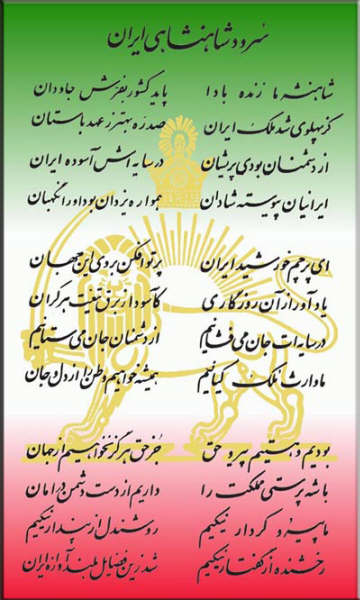 سرود شاهنشاهی ایران
شاهنشه ما زنده بادا پاید کشور بفرش جاودان
کز پهلوی شد ملک ایران صد ره بهتر ز عهد باستان
از دشمنان بودی پریشان در سایه اش آسوده ایران
ایرانیان پیوسته شادان همواره یزدان بود او را نگهبان
ای پرچم خورشید ایران پرتو افکن بروی این جهان
یاد آور از آن روزگاری کآسود از برق تیغت هر کران
در سایه ات جان می فشانیم از دشمنان جان می ستانیم
ما وارث ملک کیانیم همیشه خواهیم وطن را از دل و جان
بودیم و هستیم پیرو حق جز حق هرگز نخواهیم از جهان
با شه پرستی مملکت را داریم از دست دشمن در امان
ما پیرو کردار نیکیم روشندل از پندار نیکیم
رخشنده از گفتار نیکیم شد زین فضایل بلند آوازه ایران